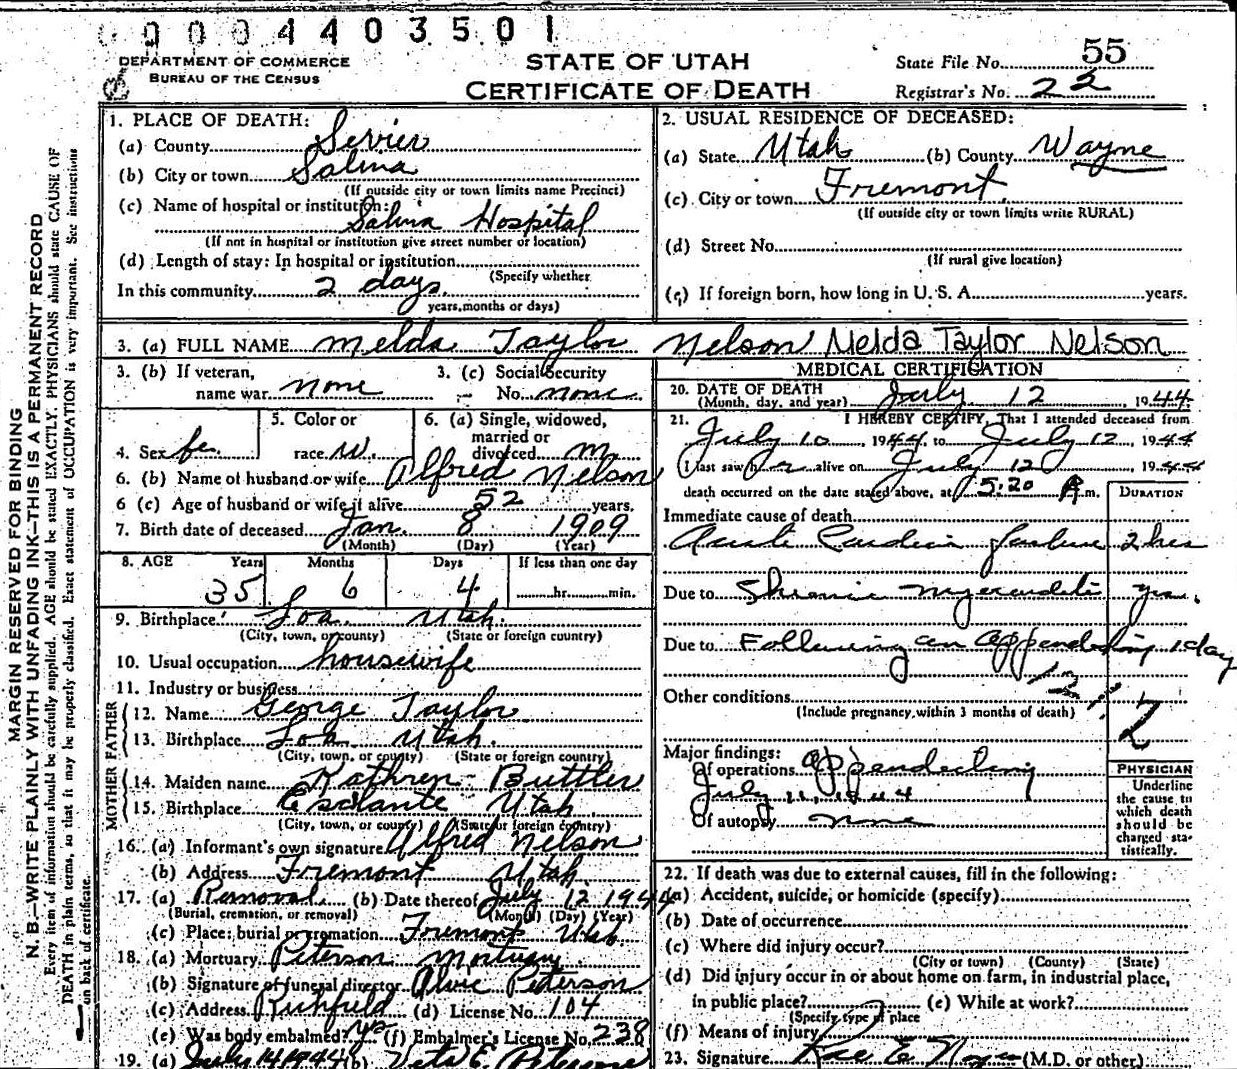 0004403501
DEPARTMENT OF COMMERCE
BUREAU OF THE CENSUS
STATE OF UTAH
CERTIFICATE OF DEATH
State File No. 55
Registrar's No. 22
MARGIN RESERVED FOR BINDING
N. B.—WRITE PLAINLY WITH UNFADING INK—THIS IS A PERMANENT RECORD
Every item of information should be carefully supplied. AGE should be stated EXACTLY. PHYSICIANS should state CAUSE OF
DEATH in plain terms, so that it may be properly classified. Exact statement of OCCUPATION is very important. See instructions
on back of certificate.
1. PLACE OF DEATH:
(a) County Sevier
(b) City or town Salina
(If outside city or town limits name Precinct)
(c) Name of hospital or institution:
Salina Hospital
(If not in hospital or institution give street number or location)
(d) Length of stay: In hospital or institution
(Specify whether
In this community 2 days
years, months or days)
2. USUAL RESIDENCE OF DECEASED:
(a) State Utah (b) County Wayne
(c) City or town Fremont
(If outside city or town limits write RURAL)
(d) Street No.
(If rural give location)
(e) If foreign born, how long in U. S. A. years.
3. (a) FULL NAME Melda Taylor Nelson Melda Taylor Nelson
3. (b) If veteran,
name war none
3. (c) Social Security
No. none
4. Sex fe.
5. Color or
race w.
6. (a) Single, widowed,
married or
divorced m
6. (b) Name of husband or wife Alfred Nelson
6 (c) Age of husband or wife if alive 52 years.
7. Birth date of deceased Jan. 8 1909
(Month) (Day) (Year)
8. AGE Years Months Days If less than one day
35 6 4 hr. min.
9. Birthplace Loa Utah.
(City, town, or county) (State or foreign country)
10. Usual occupation housewife
11. Industry or business
FATHER
12. Name George Taylor
13. Birthplace Loa Utah.
(City, town, or county) (State or foreign country)
MOTHER
14. Maiden name Kathren Buttler
15. Birthplace Esclante Utah
(City, town, or county) (State or foreign country)
16. (a) Informant's own signature Alfred Nelson
(b) Address Fremont Utah
17. (a) Removal (b) Date thereof July 12 1944
(Burial, cremation, or removal) (Month) (Day) (Year)
(c) Place: burial or cremation Fremont Utah
18. (a) Mortuary Peterson Mortuary
(b) Signature of funeral director Peterson
(c) Address Richfield (d) License No. 104
(e) Was body embalmed? yes (f) Embalmer's License No. 238
19. (a) July 14 1944 (b)
MEDICAL CERTIFICATION
20. DATE OF DEATH
(Month, day, and year) July 12, 1944
21. I HEREBY CERTIFY, That I attended deceased from
July 10, 1944 to July 12, 1944
I last saw her alive on July 12, 1944
death occurred on the date stated above, at 5:20 A.m.
DURATION
Immediate cause of death
Acute Cardiac failure 2 hrs
Due to
Due to Following an appendectomy 1 day
Other conditions
(Include pregnancy within 3 months of death)
Major findings:
Of operations appendectomy
July 11, 1944
Of autopsy none
PHYSICIAN
Underline
the cause to
which death
should be
charged sta-
tistically.
22. If death was due to external causes, fill in the following:
(a) Accident, suicide, or homicide (specify)
(b) Date of occurrence
(c) Where did injury occur?
(City or town) (County) (State)
(d) Did injury occur in or about home on farm, in industrial place,
in public place? (e) While at work?
(Specify type of place
(f) Means of injury
23. Signature (M.D. or other)